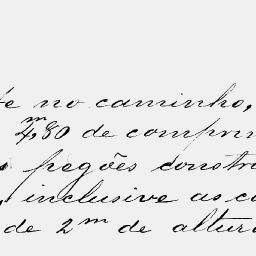 no caminho,
4,80 de compri
pegões constru
inclusive as co
de 2m de altura